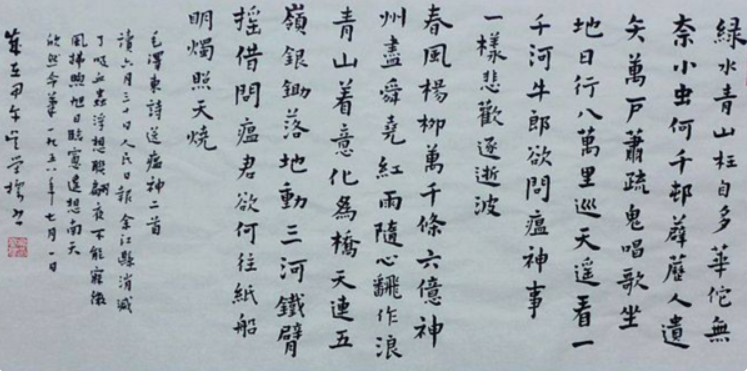 綠水青山枉自多華佗無
奈小虫何千邨薜荔人遺
矢萬戶蕭疏鬼唱歌坐
地日行八萬里巡天遥看一
千河牛郎欲問瘟神事
一樣悲歡逐逝波
春風楊柳萬千條六億神
州盡舜堯紅雨隨心飜作浪
青山着意化爲橋天連五
嶺銀鋤落地動三河鐵臂
摇借問瘟君欲何往紙船
明燭照天燒
毛澤東詩送瘟神二首
讀六月三十日人民日報余江縣消滅
了吸血蟲浮想聯翩夜不能寐微
風拂煦旭日臨窗遥想南天
欣然命筆一九五八年七月一日
歲在甲午